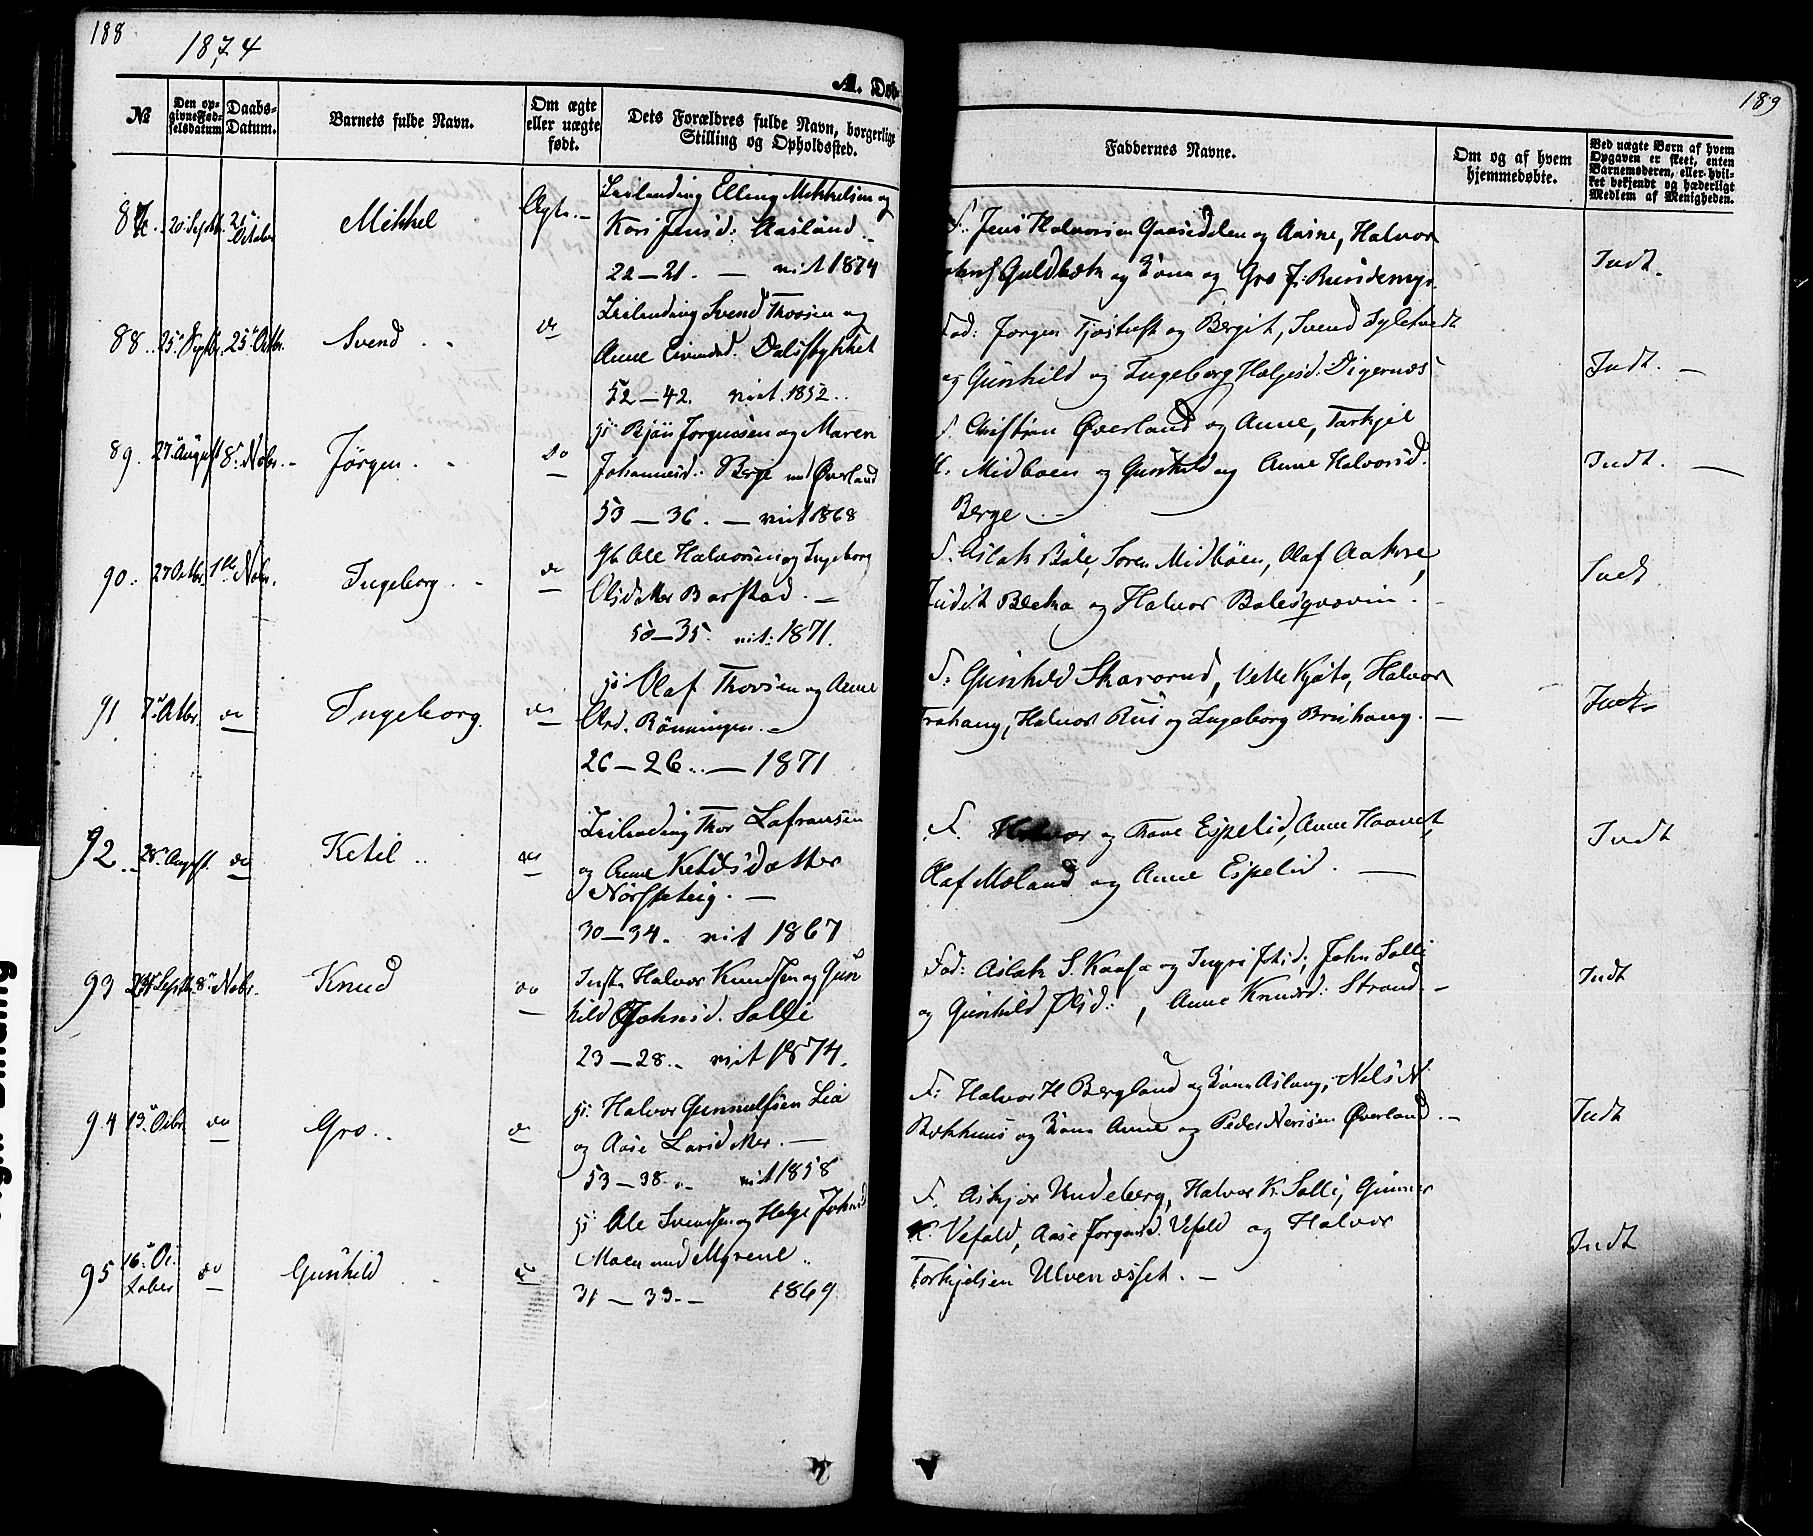 188
1874
A. Døb-
189
№
Den op-
givne Fød-
selsdatum
Daabs-
Datum.
Barnets fulde Navn.
Om ægte
eller uægte
født.
Dets Forældres fulde Navn, borgerlige
Stilling og Opholdssted.
Faddernes Navne.
Om og af hvem
hjemmedøbte.
Ved uægte Børn af hvem
Opgaven er skeet, enten
Barnemoderen, eller hvil-
ket bekjendt og hæderligt
Medlem af Menigheden.
20 Septbr. 25 October Mikkel Ægte.
Leilending Elling Mikkelsen og
Kari Jensd: Aasland
22 — 21. — vit 1874
F. Jens Halvorsen og Aasne, Halvor
Guldbæk og Kona og Gro J:
Indt.
88 25 Septbr. 25 Octbr. Svend do
Leilending Svend Thovsen og
Anne Eivindsd. Dalsstykket
52 — 42. viet 1852
Fad: Jørgen Tjostuft og Bergit, Svend
og Gunhild og Ingeborg Helgesd. Digernæs
Indt.
89. 27 August 8 Novbr. Jørgen do
Bjøn Jorgensen og Maren
Johannesd: Berge und Øverland
53 — 36. — vit 1868
F. Christian Øverland og Anne, Tarkjel
H. Midboen og Gunhild og Anne Halvorsd.
Berge
Indt.
90. 27 Octbr. 1 Novbr. Ingeborg do
Gb. Ole Halvorsen og Ingeborg
Olsdatter Barstad
50 — 35. vit: 1871.
F. Aslak Bale, Søren Midbøen, Olaf Aakre,
og Halvor
Indt
91 7 Octbr. do Ingeborg. do
Olaf Thovsen og Anne
Olsd. Rönningen
26 — 26. — 1871
F: Gunhild Skavrud, Vetle Kjøto, Halvor
Halvor Rui og Ingeborg Bruhaug.
Indt
92 28 August do Ketil do
Leilending Thor Lafransen
og Anne Ketilsdatter
Norsketeig.
30 — 34. vit 1867
F. Halvor og Thone Espelid, Anne Haavet
Olaf Moland og Anne Espelid.
Indt
93 Septbr. 8 Novbr. Knud do
Inst. Halvor Knudsen og Gun
hild Johnsd. Solli
23 — 28. vit 1874.
Fad: Aslak S. Kaasa og Ingri John Solli
og Gunhild Olsd:, Anne Knudsd: Strand.
Indt
94 13 Octbr. do Gro do
Halvor Gunnulfsen Lia
og Aase Lavidatter.
53 — 38. vit 1858
F: Halvor H Bergland og Kona Aslaug, Nels N
Bækhuus og Kona Anne og Peder Nerisen Øverland.
Indt
95 16 October do Gunhild do
Ole Svendsen og Helge Johnsd
Moen und Myrene
31 — 33. — 1869
F. Askjer Undeberg, Halvor K. Solli, Gunner
K. Vefald, Aase Jorgensd. Vefald og Halvor
Torkjelsen Ulvenæsset.
Indt